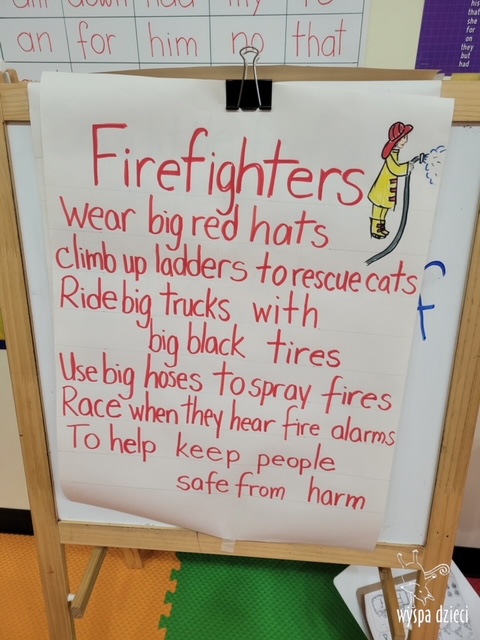 an for him no that
his
that
she
for
on
they
but
had
Firefighters
wear big red hats
climb up ladders to rescue cats
Ride big trucks with
big black tires
Use big hoses to spray fires
Race when they hear fire alarms
To help keep people
safe from harm
wyspa dzieci